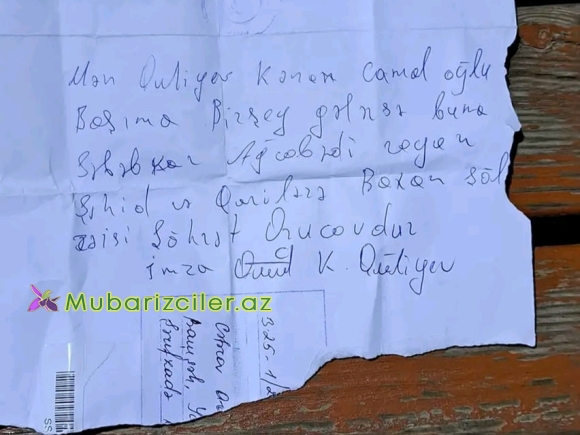 Mən Quliyev Kənan Camal oğlu
Başıma Birşey gəlnsə buna
Səbəbkar Ağcabədi rayon
Şəhid və Qazilərə Baxan şöb
əsisi Şöhrət Orucovdur
imza K. Quliyev
Mubarizciler.az
325.1/2